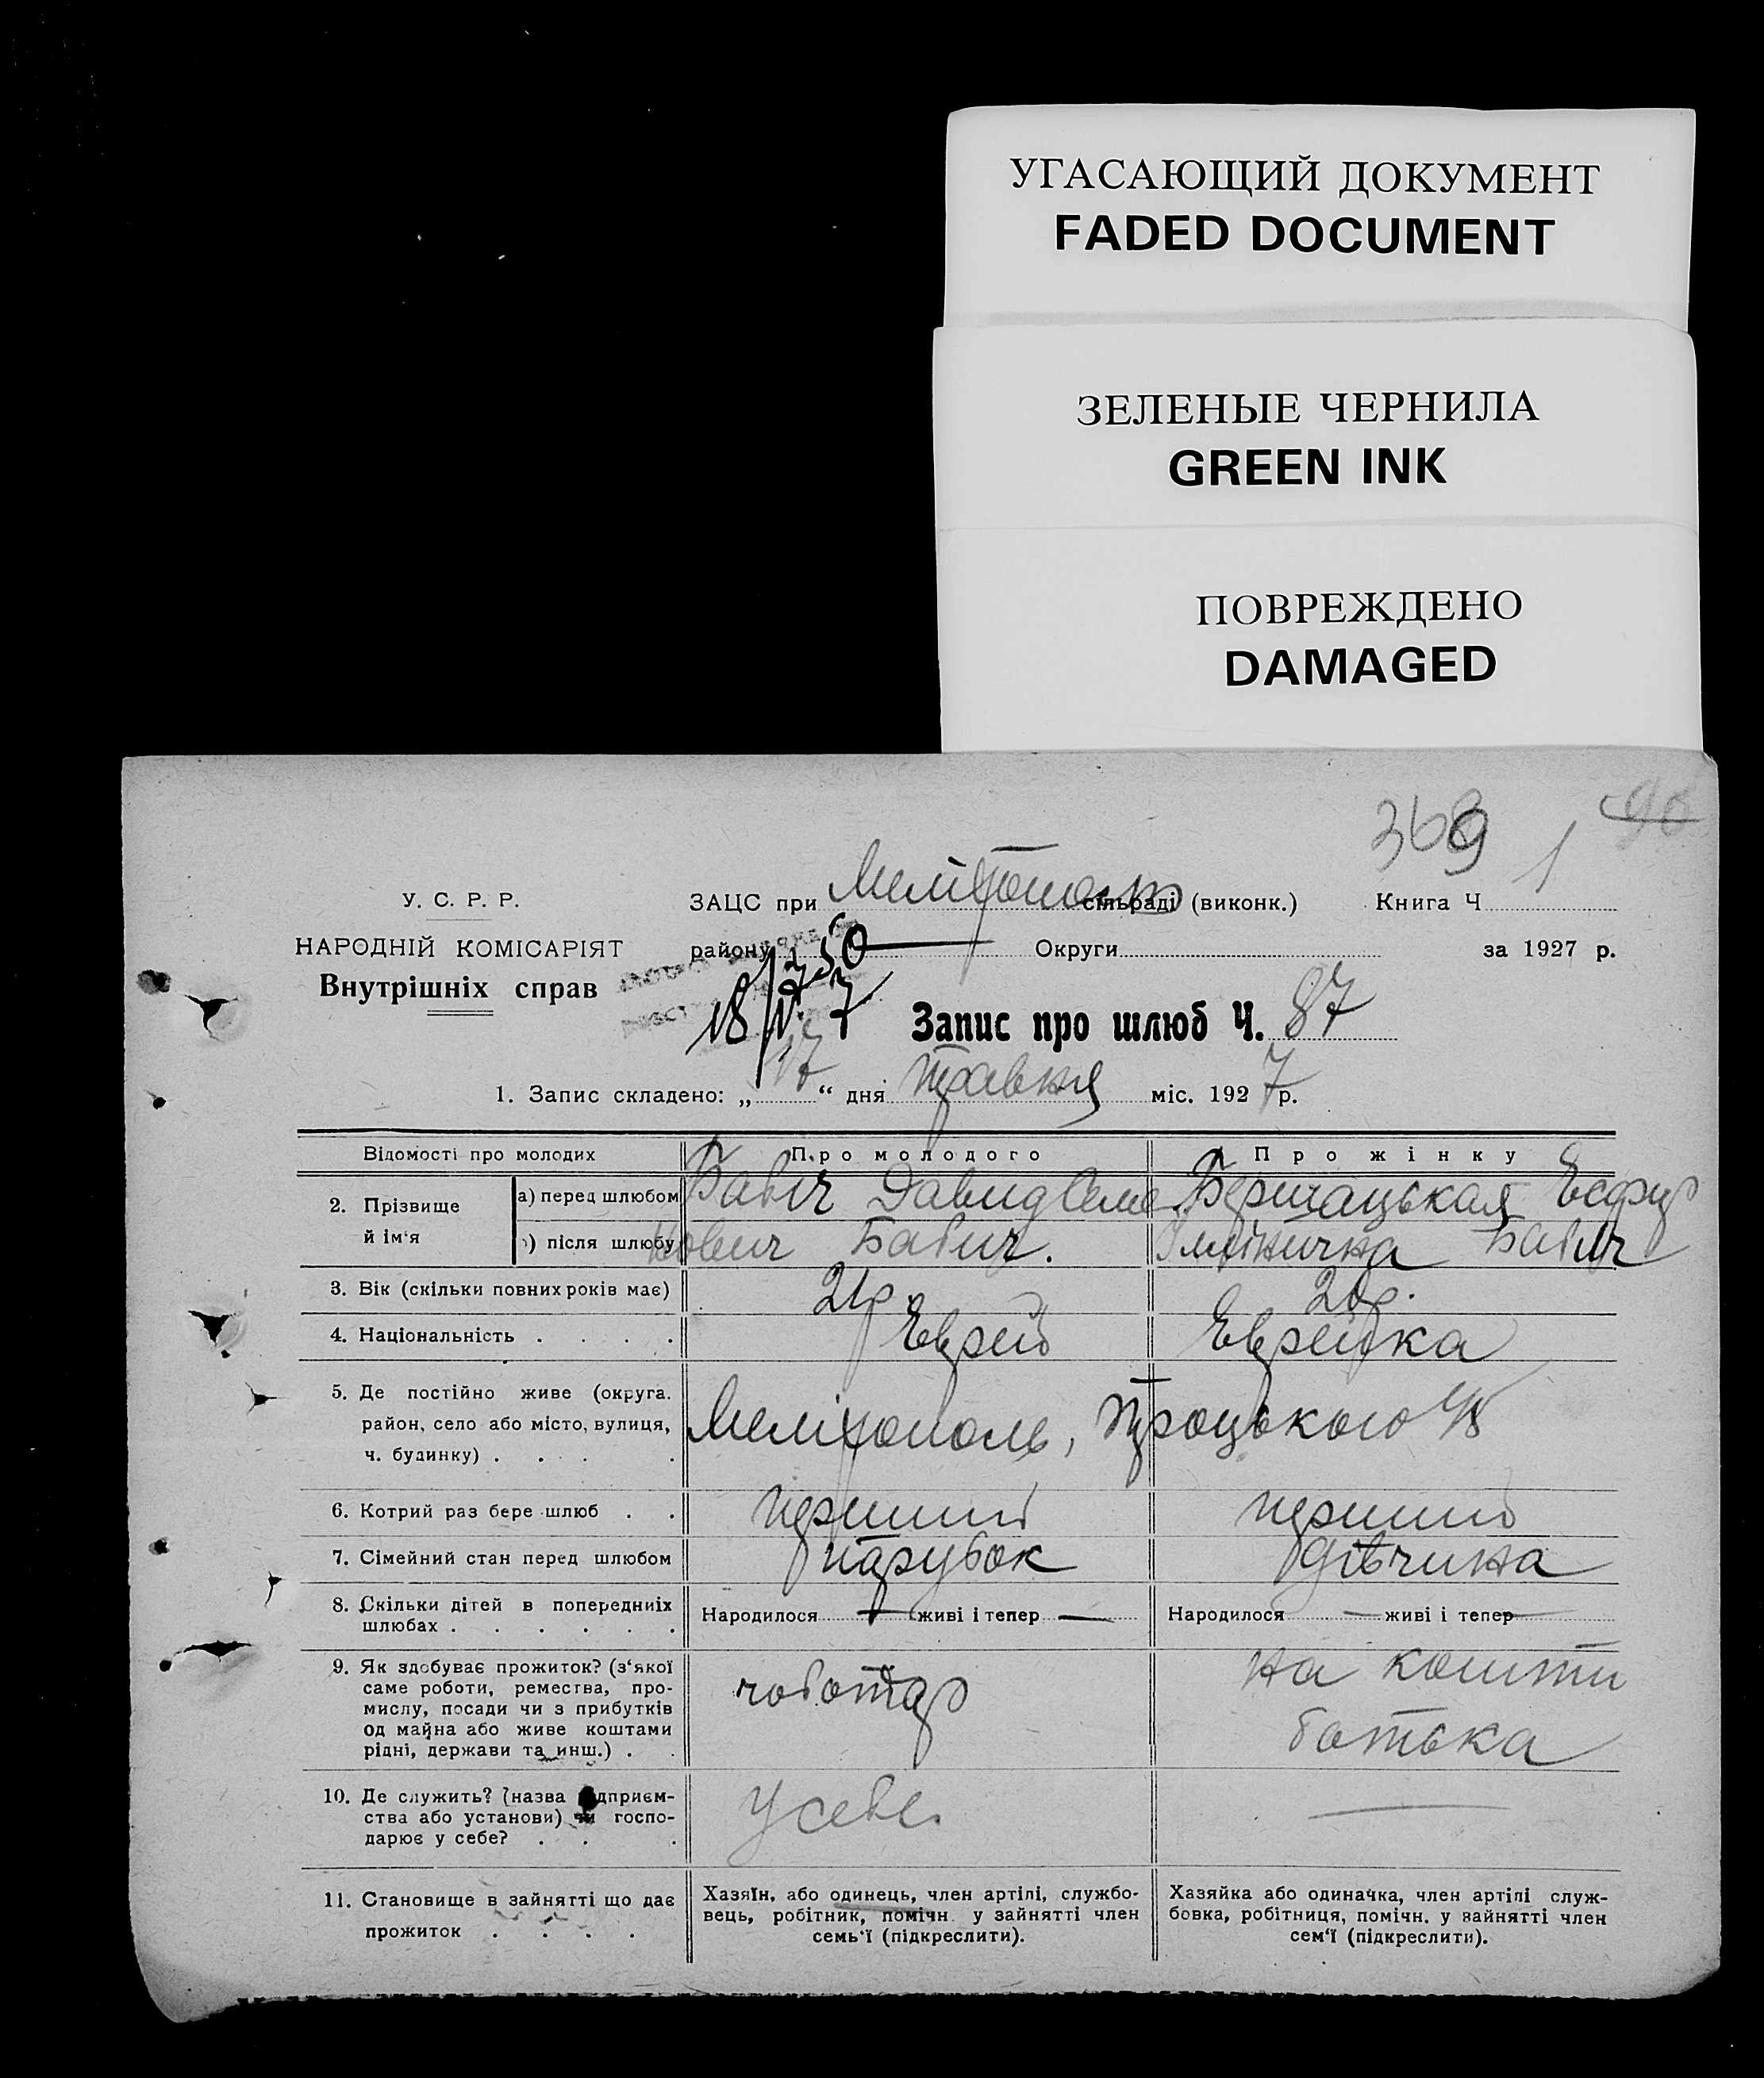 УГАСАЮЩИЙ ДОКУМЕНТ
FADED DOCUMENT
ЗЕЛЕНЫЕ ЧЕРНИЛА
GREEN INK
ПОВРЕЖДЕНО
DAMAGED
369 1
У. С. Р. Р.
ЗАЦС при сільраді (виконк.) Книга Ч
НАРОДНІЙ КОМІСАРІЯТ району 50 Округи за 1927 р.
Внутрішніх справ
18/V.27 Запис про шлюб Ч. 87
1. Запис складено: „17“ дня травня міс. 1927 р.
Відомості про молодих Про молодого Про жінку
2. Прізвище й ім'я а) перед шлюбом Бабич Давид Семе Бершацькая Есфир
б) після шлюбу нович Бабич. Бабич
3. Вік (скільки повних років має) 21 р. 20 р.
4. Національність . . . . Еврей Еврейка
5. Де постійно живе (округа.
район, село або місто, вулиця, Меліτополь, Троцького
ч. будинку) . . . .
6. Котрий раз бере шлюб . . перший перший
7. Сімейний стан перед шлюбом парубок дівчина
8. Скільки дітей в попередниіх Народилося — живі і тепер — Народилося — живі і тепер —
шлюбах . . . . . .
9. Як здобуває прожиток? (з'якої
саме роботи, ремества, про-
мислу, посади чи з прибутків
од майна або живе коштами
рідні, держави та инш.) . .
чоботар
на кошти
батька
10. Де служить? (назва підприєм-
ства або установи) чи госпо-
дарює у себе? . . .
У себе.
—
11. Становище в зайнятті що дає
прожиток . . . .
Хазяїн, або одинець, член артілі, службо-
вець, робітник, помічн. у зайнятті член
семь'ї (підкреслити).
Хазяйка або одиначка, член артілі служ-
бовка, робітниця, помічн. у зайнятті член
сем'ї (підкреслити).